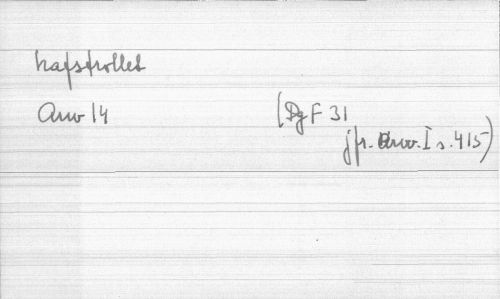 hafstrollet
Arw 14 (Dg F 31
jfr. Arw. I s. 415)